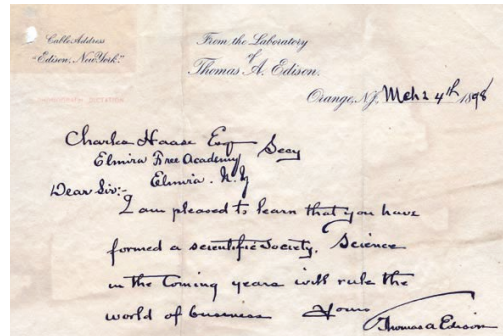 Cable Address
"Edison, New York."
From the Laboratory
of
Thomas A. Edison.
Orange, N.J. Mch 4th 1898
Charles Haase Esq
Secy
Elmira Free Academy
Elmira. N.Y
Dear Sir:-
I am pleased to learn that you have
formed a scientific Society. Science
in the Coming years will rule the
world of business Yours
Thomas a Edison